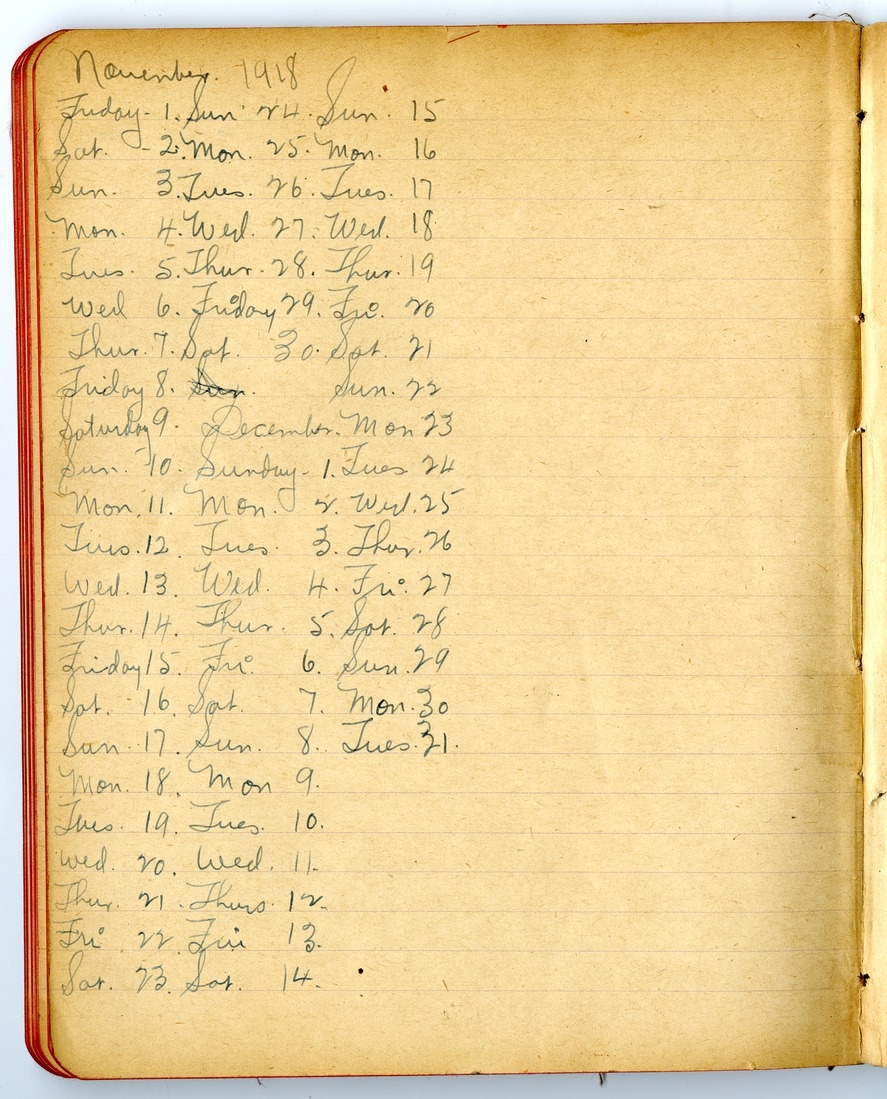 November. 1918
Friday - 1. Sun 24. Sun. 15
Sat. - 2. Mon. 25. Mon. 16
Sun. 3. Tues. 26. Tues. 17
Mon. 4. Wed. 27. Wed. 18
Tues. 5. Thur. 28. Thur. 19
Wed 6. Friday 29. Fri. 20
Thur. 7. Sat. 30. Sat. 21
Friday 8. Sun. Sun. 22
Saturday 9. December. Mon 23
Sun. 10. Sunday - 1. Tues 24
Mon. 11. Mon. 2. Wed. 25
Tues. 12. Tues. 3. Thur. 26
Wed. 13. Wed. 4. Fri. 27
Thur. 14. Thur. 5. Sat. 28
Friday 15. Fri. 6. Sun. 29
Sat. 16. Sat. 7. Mon. 30
Sun. 17. Sun. 8. Tues. 31.
Mon. 18. Mon 9.
Tues. 19. Tues. 10.
Wed. 20. Wed. 11.
Thur. 21. Thurs 12.
Fri 22. Fri 13.
Sat. 23. Sat. 14.